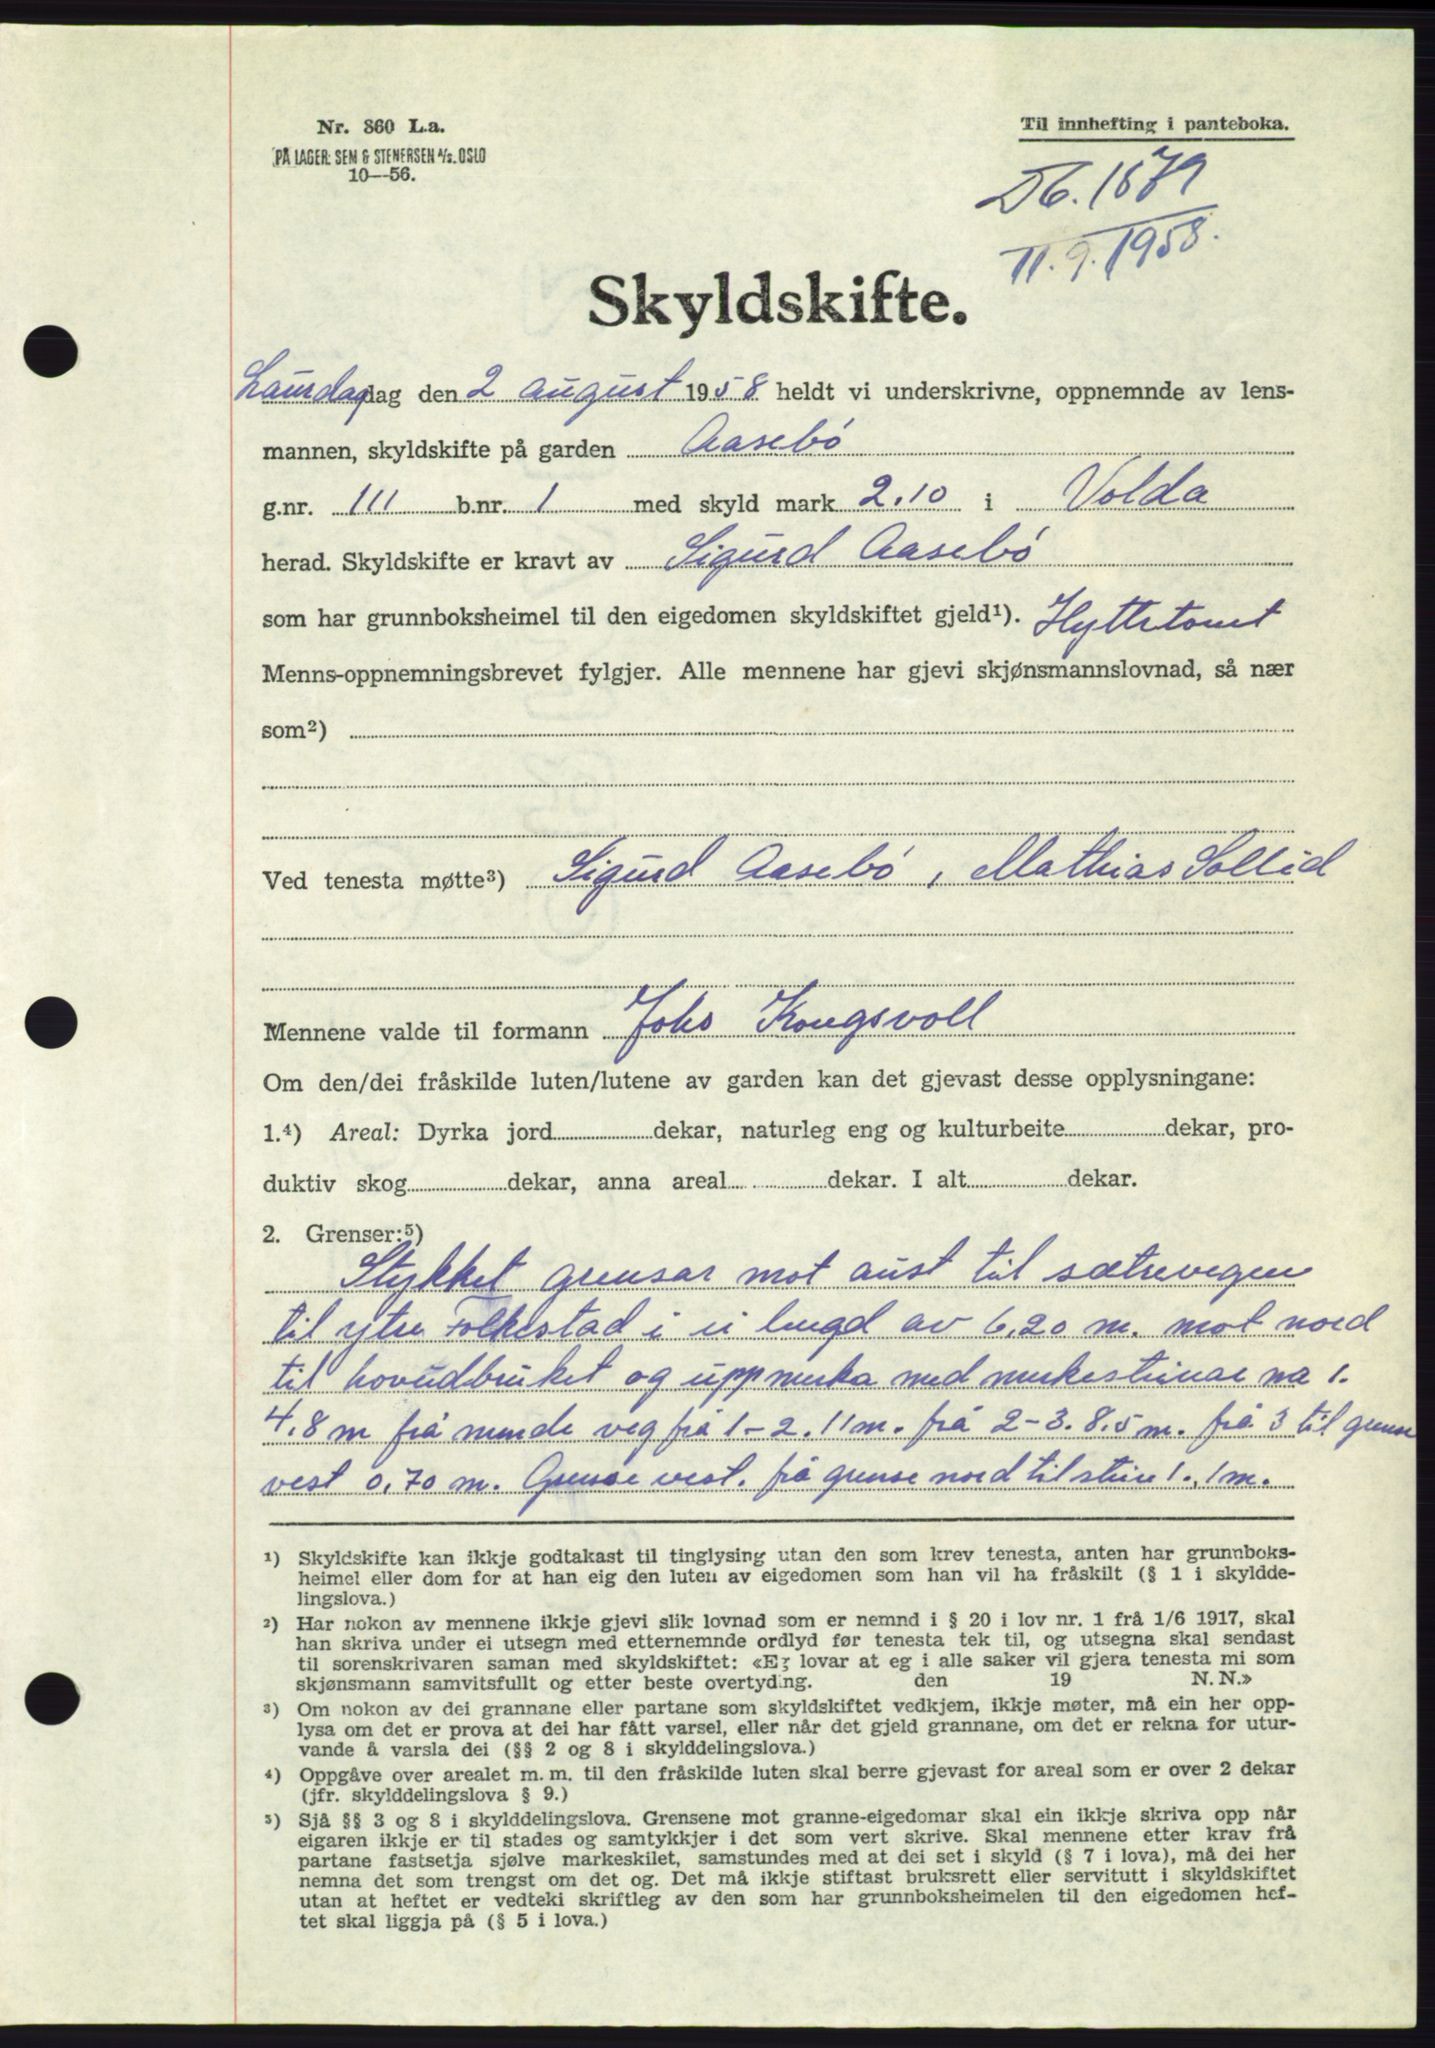 Nr. 860 L.a.
PÅ LAGER: SEM & STENERSEN A/S. OSLO
10—56.
Til innhefting i panteboka.
Db. 1879
11.9.1958.
Skyldskifte.
Laurdag dag den 2 august 1958 heldt vi underskrivne, oppnemnde av lens-
mannen, skyldskifte på garden Aasebö
g.nr. 111 b.nr. 1 med skyld mark 2.10 i Volda
herad. Skyldskifte er kravt av Sigurd Aasebö
som har grunnboksheimel til den eigedomen skyldskiftet gjeld¹). Hyttetomt
Menns-oppnemningsbrevet fylgjer. Alle mennene har gjevi skjønsmannslovnad, så nær
som²)
Ved tenesta møtte³) Sigurd Aasebö, Mathias Sollid
Mennene valde til formann Johs Kongsvoll
Om den/dei fråskilde luten/lutene av garden kan det gjevast desse opplysningane:
1.⁴) Areal: Dyrka jord dekar, naturleg eng og kulturbeite dekar, pro-
duktiv skog dekar, anna areal dekar. I alt dekar.
2. Grenser:⁵)
Stykket grensar mot aust til sætrevegen
til ytre Folkestad i ei lengd av 6,20 m. mot nord
til hovudbruket og uppmerka med merkesteinar na 1.
4,8 m frå nemde veg frå 1-2. 11 m. frå 2-3. 8,5 m. frå 3 til grense
vest 0,70 m. Grense vest. frå grense nord til steine 1., 1 m.
¹) Skyldskifte kan ikkje godtakast til tinglysing utan den som krev tenesta, anten har grunnboks-
heimel eller dom for at han eig den luten av eigedomen som han vil ha fråskilt (§ 1 i skyldde-
lingslova.)
²) Har nokon av mennene ikkje gjevi slik lovnad som er nemnd i § 20 i lov nr. 1 frå 1/6 1917, skal
han skriva under ei utsegn med etternemnde ordlyd før tenesta tek til, og utsegna skal sendast
til sorenskrivaren saman med skyldskiftet: «Eg lovar at eg i alle saker vil gjera tenesta mi som
skjønsmann samvitsfullt og etter beste overtyding. den 19 N. N.»
³) Om nokon av dei grannane eller partane som skyldskiftet vedkjem, ikkje møter, må ein her opp-
lysa om det er prova at dei har fått varsel, eller når det gjeld grannane, om det er rekna for utur-
vande å varsla dei (§§ 2 og 8 i skylddelingslova.)
⁴) Oppgåve over arealet m. m. til den fråskilde luten skal berre gjevast for areal som er over 2 dekar
(jfr. skylddelingslova § 9.)
⁵) Sjå §§ 3 og 8 i skylddelingslova. Grensene mot granne-eigedomar skal ein ikkje skriva opp når
eigaren ikkje er til stades og samtykkjer i det som vert skrive. Skal mennene etter krav frå
partane fastsetja sjølve markeskilet, samstundes med at dei set i skyld (§ 7 i lova), må dei her
nemna det som trengst om det og. Det må ikkje stiftast bruksrett eller servitutt i skyldskiftet
utan at heftet er vedteki skriftleg av den som har grunnboksheimelen til den eigedomen hef-
tet skal liggja på (§ 5 i lova.)